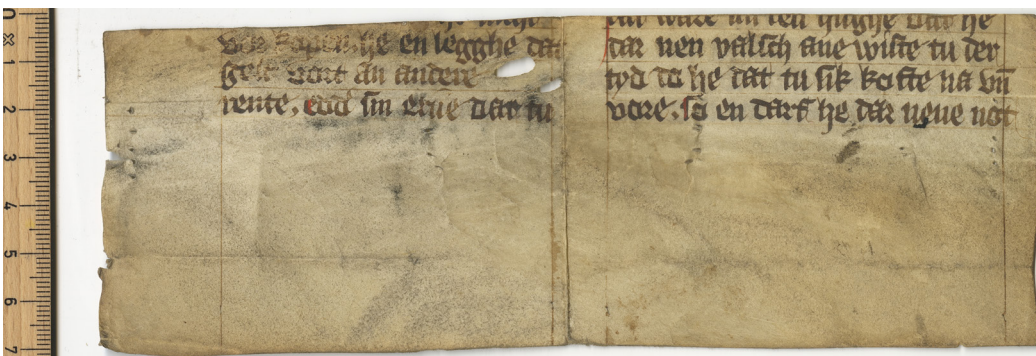 vor kopen. he en legghe dat
gelt vort an andere
rente, edd sin erue dar tu
tüghe dat he
dar nen valsch ane wiste tu der
tyd do he dat tu sik kofte na vn̄
vore. so en darf he dar nene not